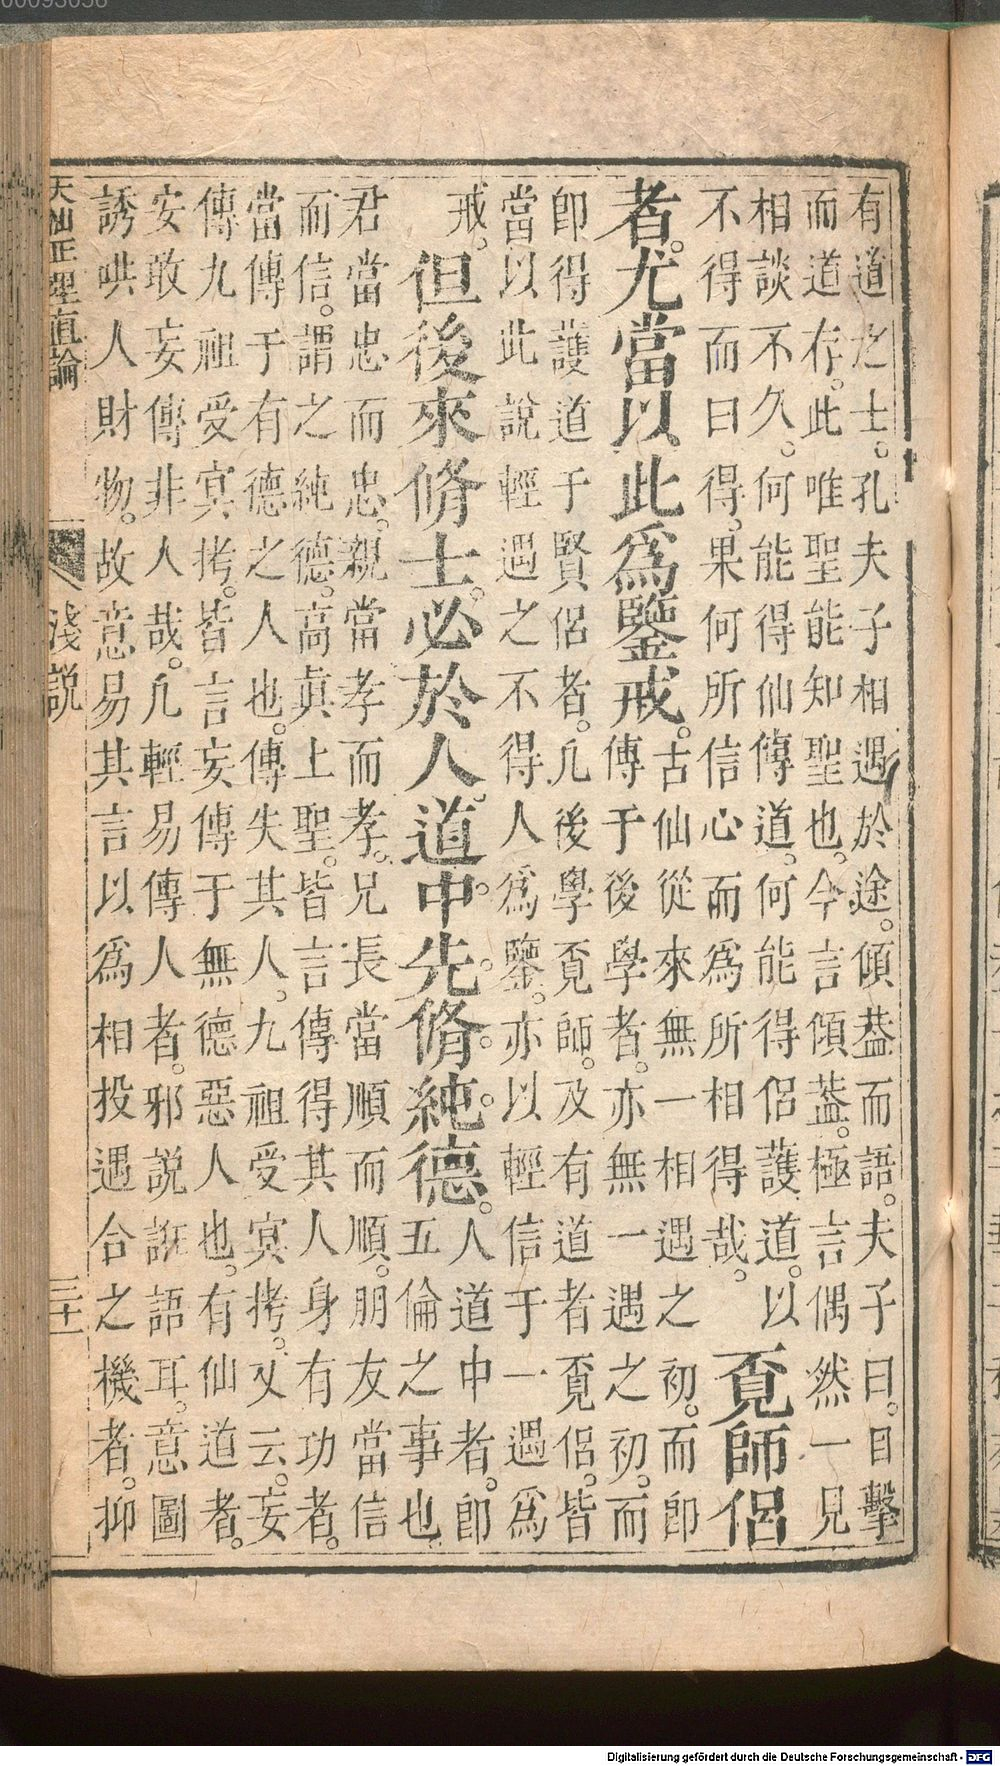 有道之士。孔夫子相遇於途。傾葢而語。夫子曰。目擊
而道存。此唯聖能知聖也。今言傾葢。極言偶然一見
相談不久。何能得仙傳道。何能得侶護道。以
不得而曰得。果何所信心而爲所相得哉。
覔師侶
者。尤當以此爲鑒戒。
古仙從來無一相遇之初。而即
傳于後學者。亦無一遇之初。而
即得護道于賢侶者。凡後學覔師。及有道者覔侶。皆
當以此說輕遇之不得人爲鑒。亦以輕信于一遇爲
戒。
但後來脩士。必於人道中。先脩純德。
人道中者。即
五倫之事也
君當忠而忠。親當孝而孝。兄長當順而順。朋友當信
而信。謂之純德。高眞上聖。皆言傳得其人身有功者。
當傳于有德之人也。傳失其人。九祖受冥拷。又云。妄
傳九祖受冥拷。皆言妄傳于無德惡人也。有仙道者。
安敢妄傳非人哉。凡輕易傳人者。邪說誑語耳。意圖
誘哄人財物。故意易其言以爲相投遇合之機者。抑
天仙正理直論
淺說
三十一
Digitalisierung gefördert durch die Deutsche Forschungsgemeinschaft - DFG